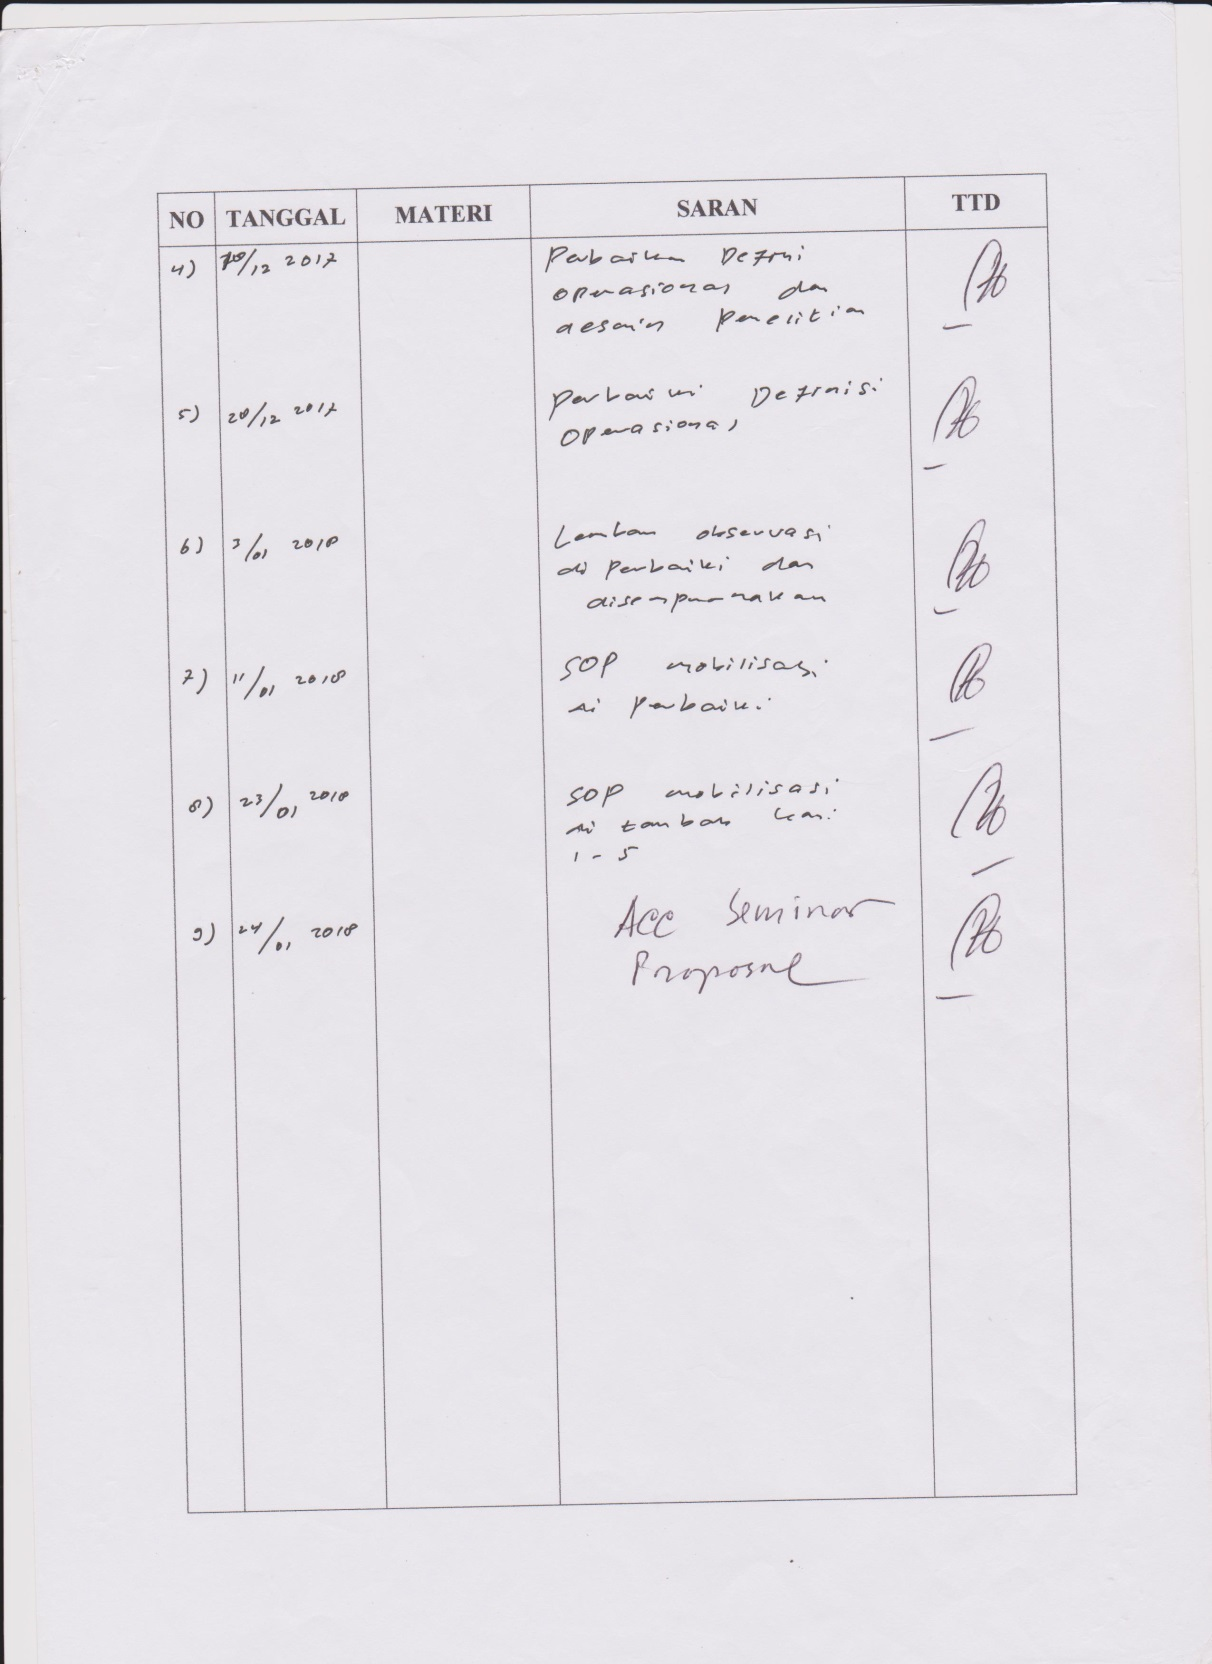 NO TANGGAL MATERI SARAN TTD
4) /12 2017 Perbaikan Defini
operasional dan
desain penelitian
5) 28/12 2017 Perbaiki Definisi
operasional
6) 3/01 2018 Lembar observasi
di perbaiki dan
disempurnakan
7) 11/01 2018 SOP mobilisasi
di perbaiki
8) 23/01 2018 SOP mobilisasi
di tambah hari
1 - 5
9) 24/01 2018 ACC Seminar
Proposal